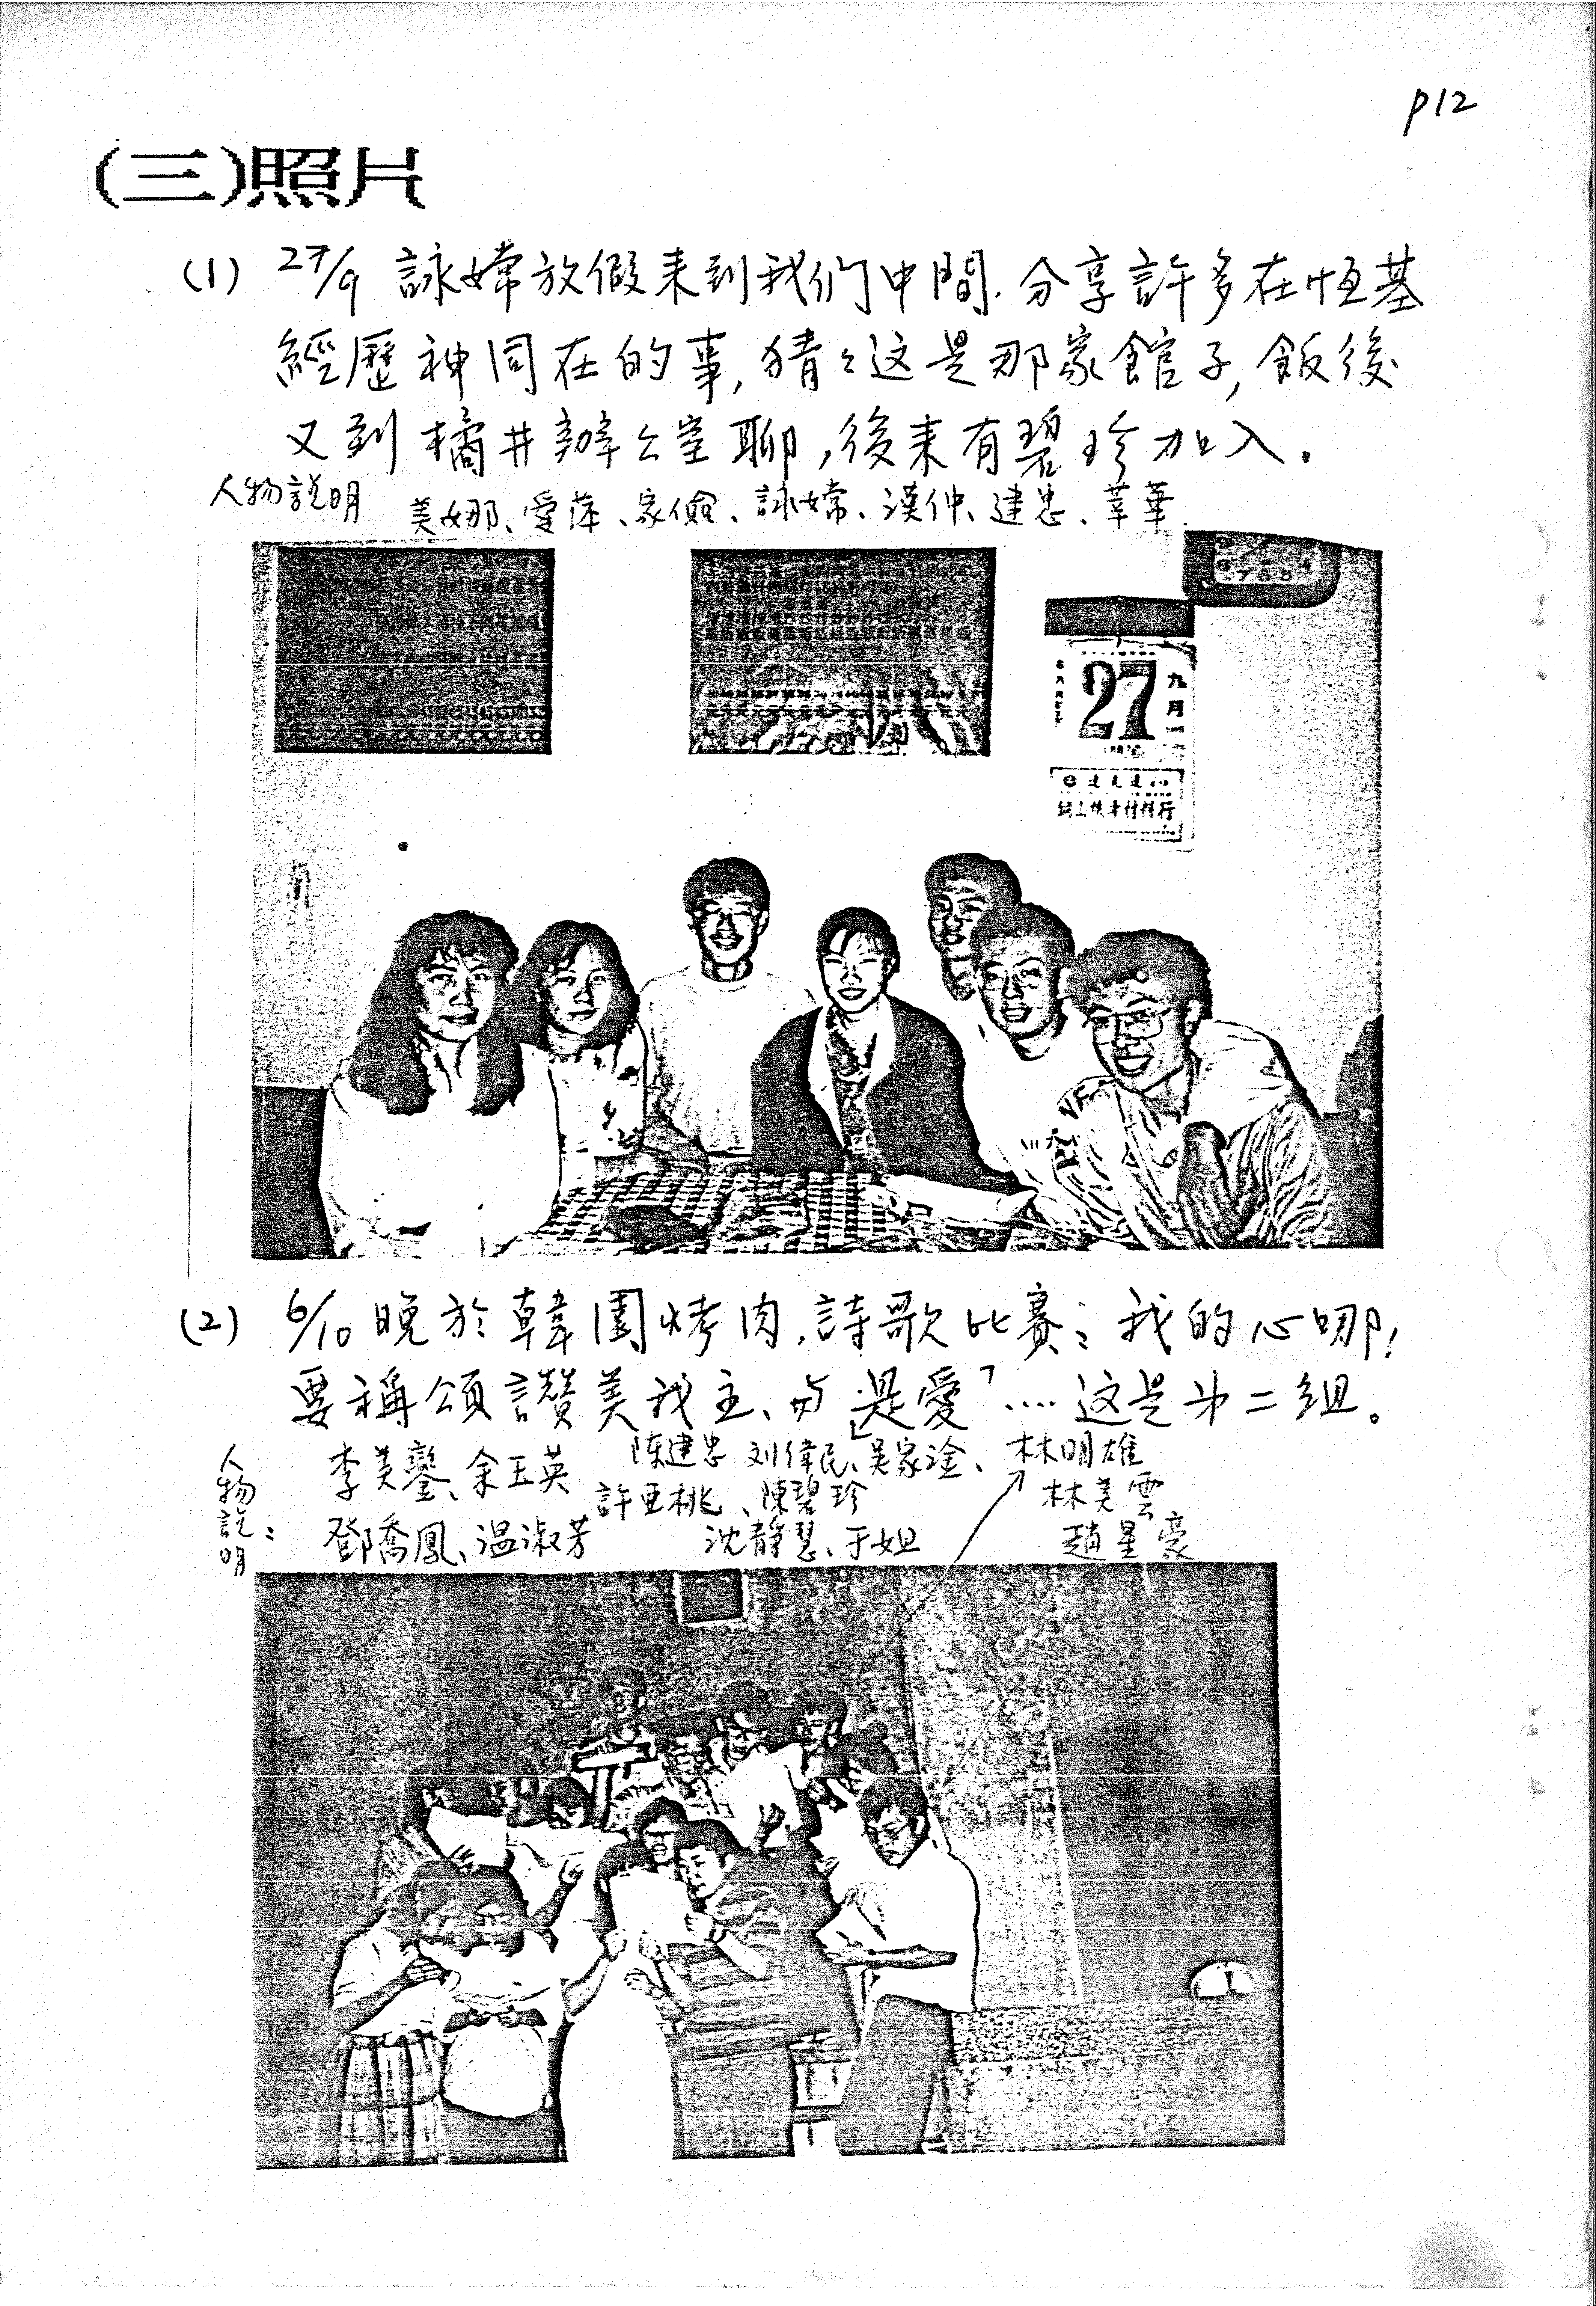 p12
(三)照片
(1) 27/9 詠嫦放假来到我们中間.分享許多在恆基
經歷神同在的事,猜々这是那家館子,飯後
又到橘井辦公室聊,後来有碧珍加入.
人物說明 美娜、愛萍、家儉、詠嫦、漢仲、建忠、莘華
27
九月
(2) 6/10 晚於韓園烤肉,詩歌比賽:我的心哪!
要稱頌讚美我主、与「是愛」....这是第二組。
人物說明: 李美鑾、余玉英 陈建忠 刘偉民、吴家淦、林明雄
許亜桃、陳碧珍 林美雲
鄧喬鳳、温淑芳 沈靜慧、于姐 趙星豪